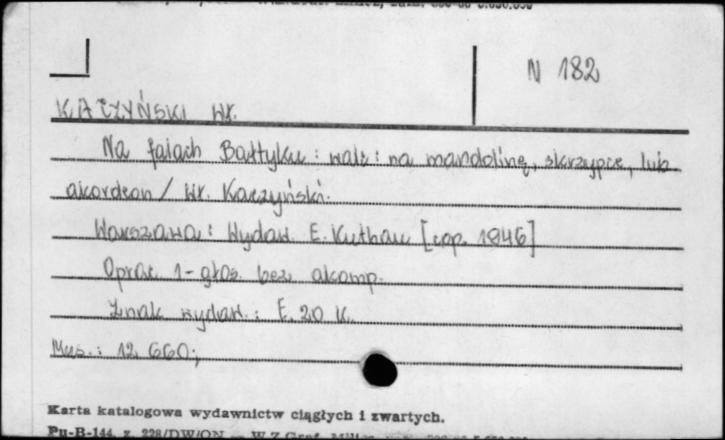 N 182
KACZYŃSKI Wł.
Na falach Bałtyku : walc : na mandolinę, skrzypce, lub
akordeon / Wł. Kaczyński.
Warszawa : Wydaw. E. Kuthan [cop. 1946]
Oprac. 1-głos. bez akomp.
Znak wydaw. : E. 20 K.
Mus. : 12 660;
Karta katalogowa wydawnictw ciągłych i zwartych.
Pu-B-144, z. 228/DW/ON — W.Z.Graf.